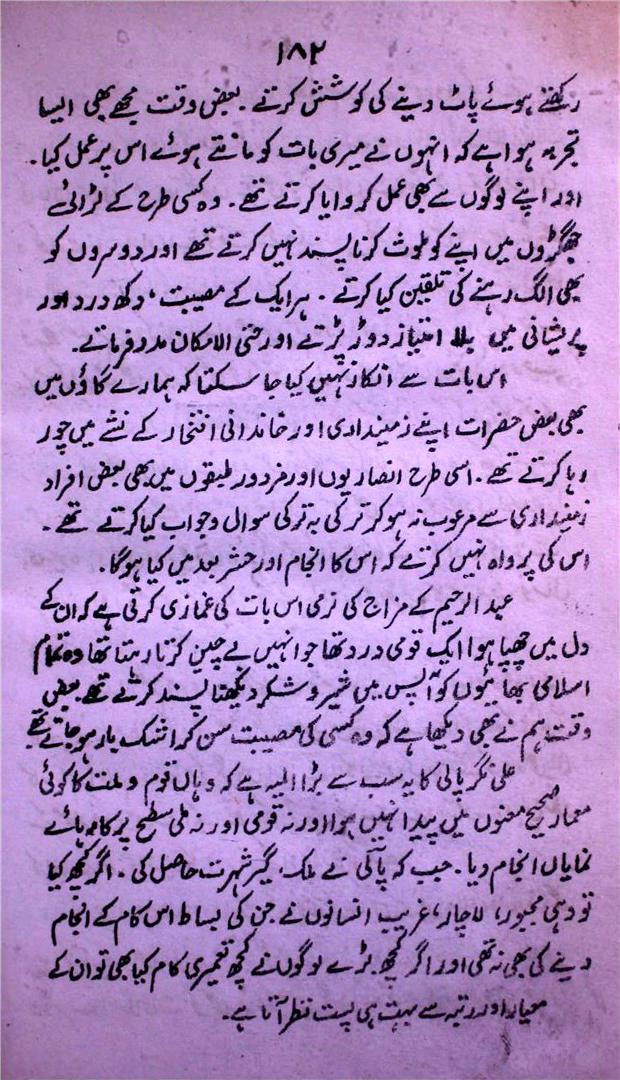 ۱۸۲
رکھتے ہوئے پاٹ دینے کی کوشش کرتے۔ بعض وقت مجھے بھی ایسا
تجربہ ہوا ہے کہ انہوں نے میری بات کو مانتے ہوئے اس پر عمل کیا۔
اور اپنے لوگوں سے بھی عمل کروایا کرتے تھے۔ وہ کسی طرح کے لڑائی
جھگڑوں میں اپنے کو ملوث کرنا پسند نہیں کرتے تھے اور دوسروں کو
بھی الگ رہنے کی تلقین کیا کرتے۔ ہر ایک کے مصیبت، دکھ درد اور
پریشانی میں بلا امتیاز دوڑ پڑتے اور حتی الامکان مدد فرماتے۔
اس بات سے انکار نہیں کیا جا سکتا کہ ہمارے گاؤں میں
بھی بعض حضرات اپنے زمینداری اور خاندانی افتخار کے نشے میں چور
رہا کرتے تھے۔ اسی طرح انصاریوں اور مزدور طبقوں میں بھی بعض افراد
زمینداری سے مرعوب نہ ہو کر ترکی بہ ترکی سوال و جواب کیا کرتے تھے۔
اس کی پرواہ نہیں کرتے کہ اس کا انجام اور حشر بعد میں کیا ہوگا۔
عبد الرحیم کے مزاج کی نرمی اس بات کی غمازی کرتی ہے کہ ان کے
دل میں چھپا ہوا ایک قومی درد تھا جو انہیں بے چین کرتا رہتا تھا وہ تمام
اسلامی بھائیوں کو آپس میں شیر و شکر دیکھنا پسند کرتے تھے بعض
وقت ہم نے بھی دیکھا ہے کہ وہ کسی کی مصیبت سن کر اشک بار ہو جاتے تھے
علی نگر پالی کا یہ سب سے بڑا المیہ ہے کہ وہاں قوم و ملت کا کوئی
معمار صحیح معنوں میں پیدا نہیں ہوا اور نہ قومی اور نہ ملی سطح پر کارہائے
نمایاں انجام دیا۔ جب کہ پالی نے ملک گیر شہرت حاصل کی۔ اگر کچھ کیا
تو وہی مجبور، لاچار، غریب انسانوں نے جن کی بساط اس کام کے انجام
دینے کی بھی نہ تھی اور اگر کچھ بڑے لوگوں نے کچھ تعمیری کام کیا بھی تو ان کے
معیار اور رتبہ سے بہت ہی پست نظر آتا ہے۔